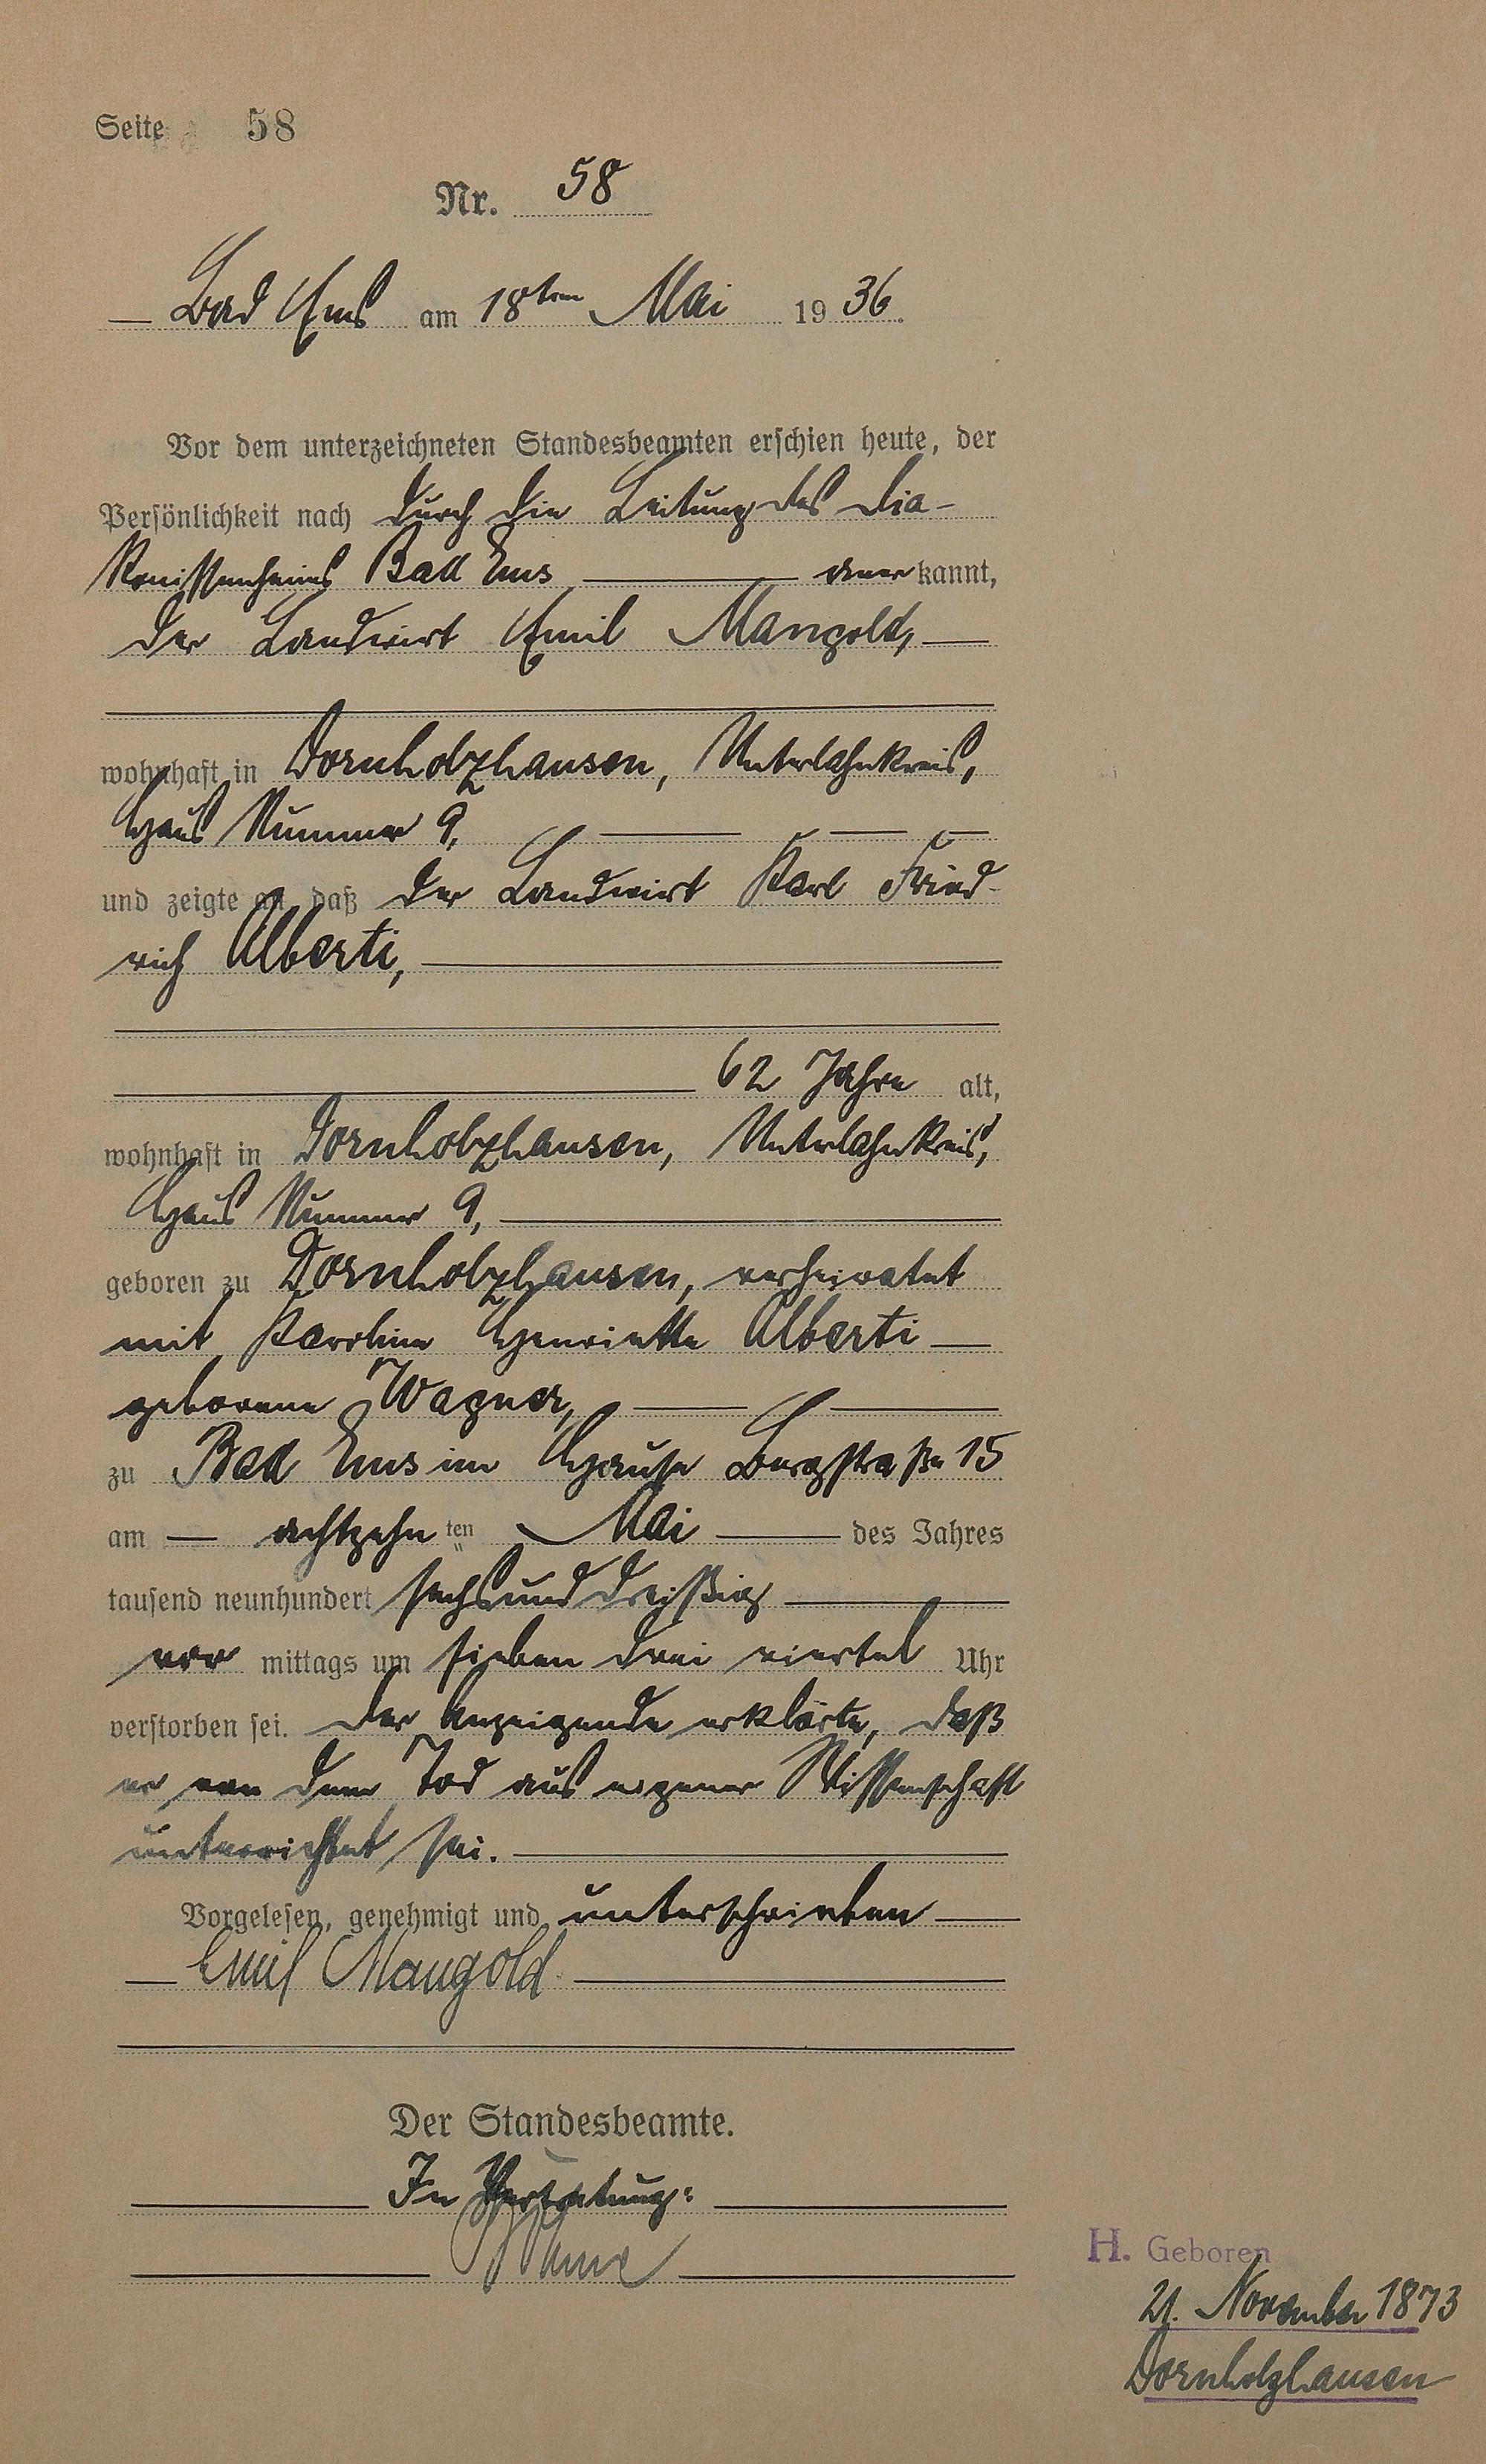 Seite 58
Nr. 58
Bad Ems am 18ten Mai 1936.
Vor dem unterzeichneten Standesbeamten erschien heute, der
Persönlichkeit nach durch die Leitung des Dia-
konissenheims Bad Ems anerkannt,
der Landwirt Emil Mangold,
wohnhaft in Dornholzhausen, Unterlahnkreis,
Haus Nummer 9,
und zeigte an, daß der Landwirt Karl Fried-
rich Alberti,
62 Jahre alt,
wohnhaft in Dornholzhausen, Unterlahnkreis,
Haus Nummer 9,
geboren zu Dornholzhausen, verheiratet
mit Karoline Henriette Alberti
geborene Wagner,
zu Bad Ems im Hause Bergstraße 15
am achtzehnten Mai des Jahres
tausend neunhundert sechsunddreißig
vormittags um sieben drei viertel Uhr
verstorben sei. Der Anzeigende erklärte, daß
er von dem Tod aus eigener Wissenschaft
unterrichtet sei.
Vorgelesen, genehmigt und unterschrieben
Emil Mangold
Der Standesbeamte.
In Vertretung:
H. Geboren
21. November 1873
Dornholzhausen